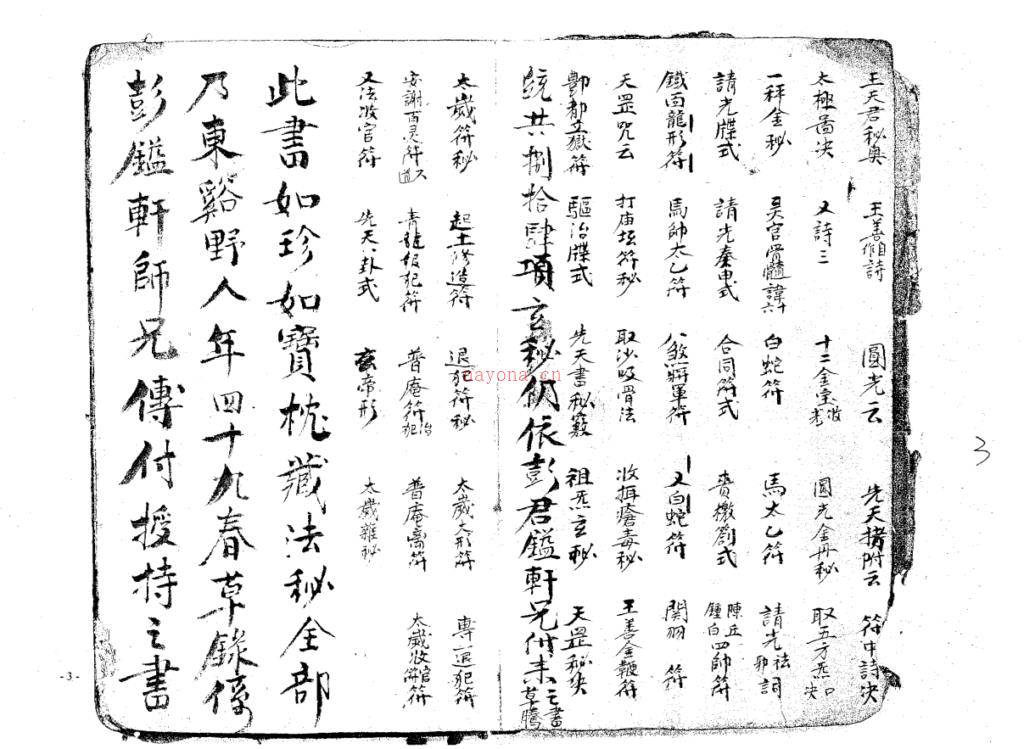 王天君秘奥 王善嶽詩 圓光云 先天搭附云 符中詩决
太極畵决 又詩三 十二金堂 圓光金丹秘 取五方炁口决
一秤金秘 吴宫骨髓諱六十 白蛇符 馬太乙符 請光祛邪詞
請光牒式 請光奏申式 合同符式 賫檄劄式 陳丘鍾白四帥符
鐵面龍形符 馬帥太乙符 八煞將軍符 又白蛇符 関羽符
天罡咒云 打庙坛符秘 取沙吸骨法 收捐瘡毒秘 王善金鞭符
酆都立獄符 驅治牒式 先天書秘竅 祖炁玄秘 天罡秘決
統共捌拾肆項玄秘仍依彭君鎰軒兄付来之書草騰
太歲符秘 起土修造符 退犯符秘 太歲大形符 專一退犯符
安謝百灵符 青龍報犯符 普庵符治犯 普庵禽符 太歲收官符
又法收官符 先天八卦式 玄帝形 太歲雜秘
此書如珍如寶枕藏法秘全部
乃東谿野人年四十九春草錄係
彭鎰軒師兄傳付授持之書
3
-3-
nayona.cn